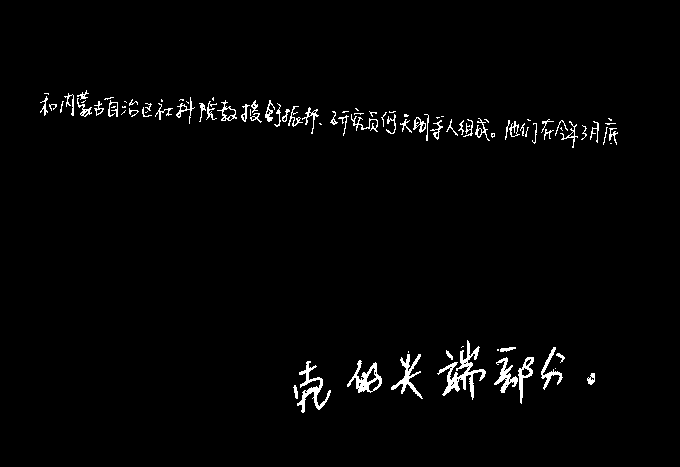 和内蒙古自治区社科院教授舒振邦、研究员何天明等人组成。他们在今年3月底
壳的尖端部分。